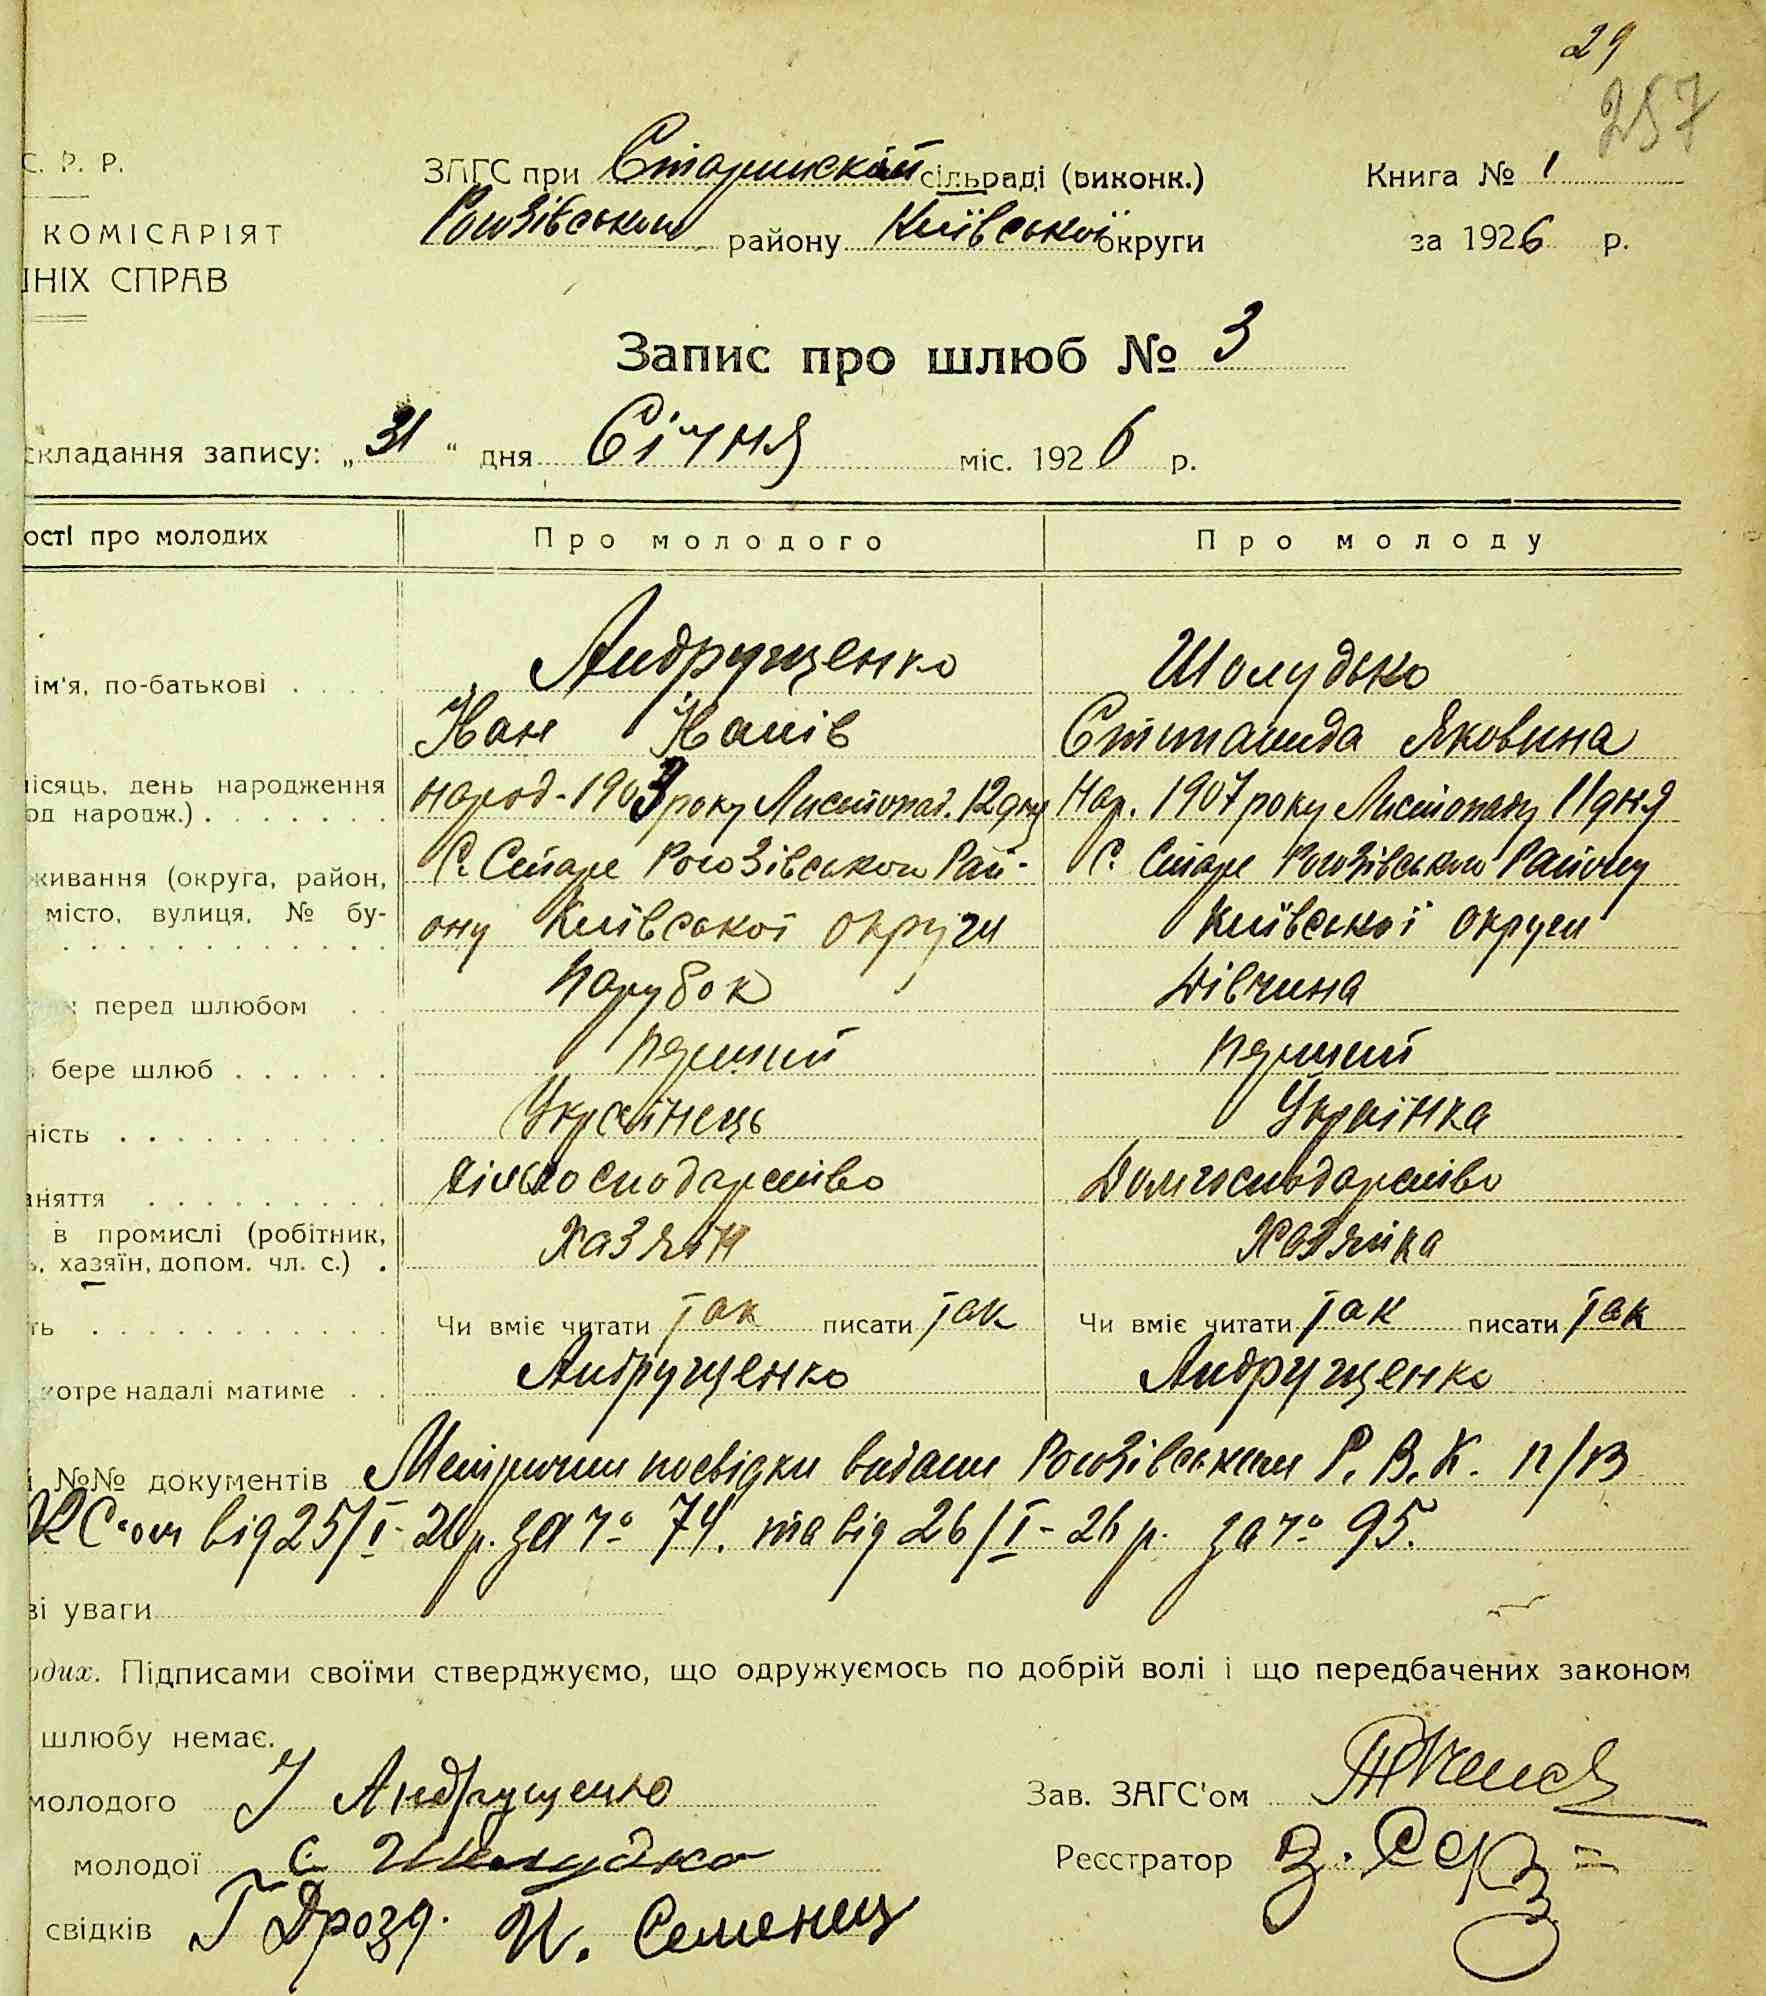 29
257
С. Р. Р.
ЗАГС при Старинскій сільраді (виконк.)
Книга № 1
КОМІСАРІЯТ
Рогозівського району Київської округи
за 1926 р.
НІХ СПРАВ
Запис про шлюб № 3
складання запису: „31“ дня Січня міс. 1926 р.
ості про молодих
Про молодого
Про молоду
Андрущенко
Шолудько
ім'я, по-батькові
Іван Іванів
Степанида Яковина
місяць, день народження
народ-1903 року Листопад. 12 дня
Нар. 1907 року Листопаду 11 дня
од народж.)
С. Старе Рогозівського Рай-
С. Старе Рогозівського Району
живання (округа, район,
місто, вулиця, № бу-
ону Київської округи
Київської округи
Парубок
Дівчина
перед шлюбом
перший
перший
бере шлюб
Українець
Українка
ність
сільгосподарство
Домгосподарство
аняття
в промислі (робітник,
Хазяїн
Хазяйка
, хазяїн, допом. чл. с.)
ть
Чи вміє читати так писати так
Чи вміє читати так писати так
Андрущенко
Андрущенко
котре надалі матиме
№№ документів Метричні посвідки видані Рогозівським Р. В. К. п/в
від 25/I-26 р. за № 74. та від 26/I-26 р. за № 95.
ві уваги
одих. Підписами своїми стверджуємо, що одружуємось по добрій волі і що передбачених законом
шлюбу немає.
молодого І Андрущенко
Зав. ЗАГС'ом
молодої С Шолудько
Реєстратор
свідків Г Дрозд. И. Семенец